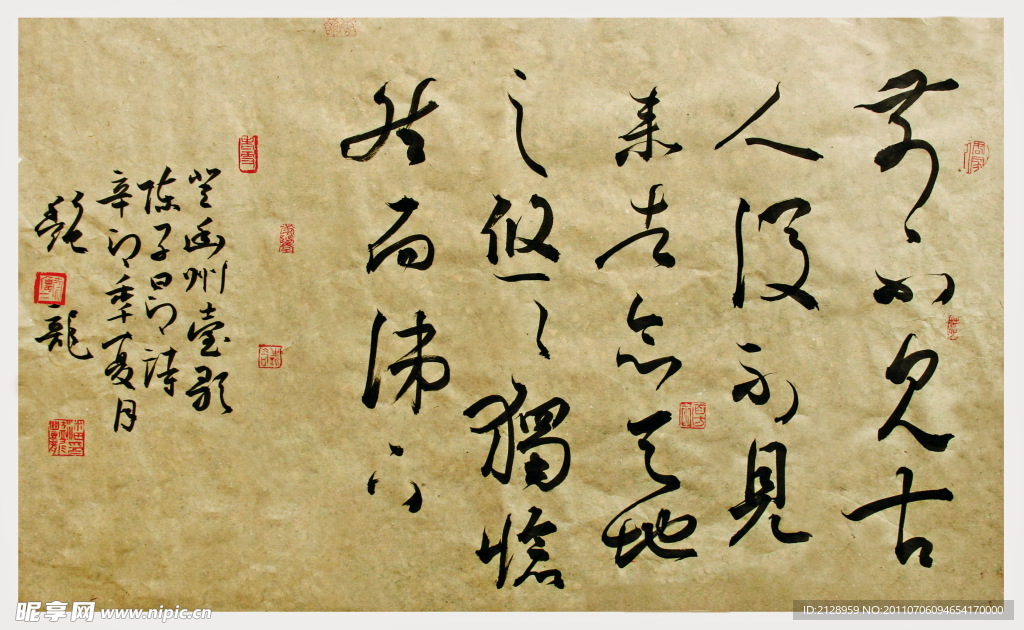 前不見古
人後不見
来者念天地
之悠悠獨愴
然而涕下
登幽州臺歌
陈子昂詩
辛卯季夏月
龍
昵享网 www.nipic.cn
ID:2128959 NO:20110706094654170000